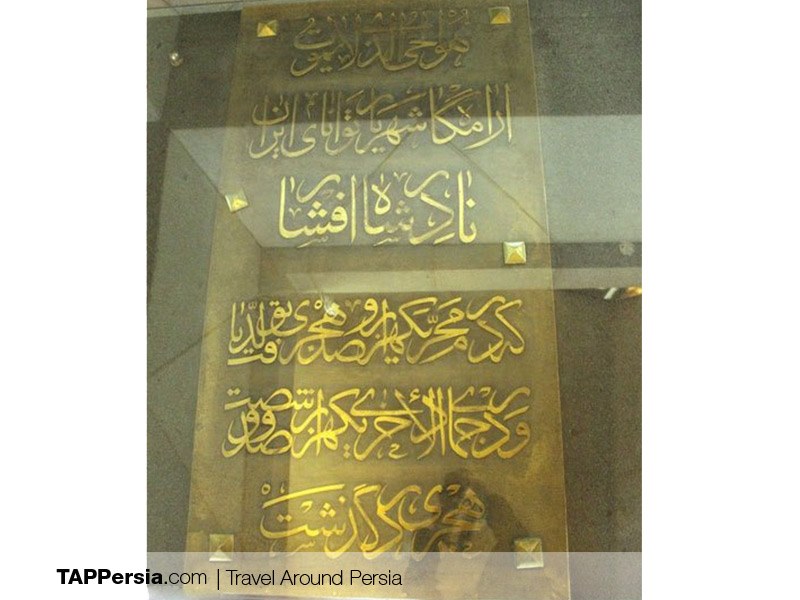 هوالحی الذی لایموت
آرامگاه شهریار توانای ایران
نادر شاه افشار
که در محرم یکهزار و صد هجری تولّد یافت
و در جمادی الأخری یکهزار و صد و شصت
هجری درگذشت
TAPPersia.com | Travel Around Persia